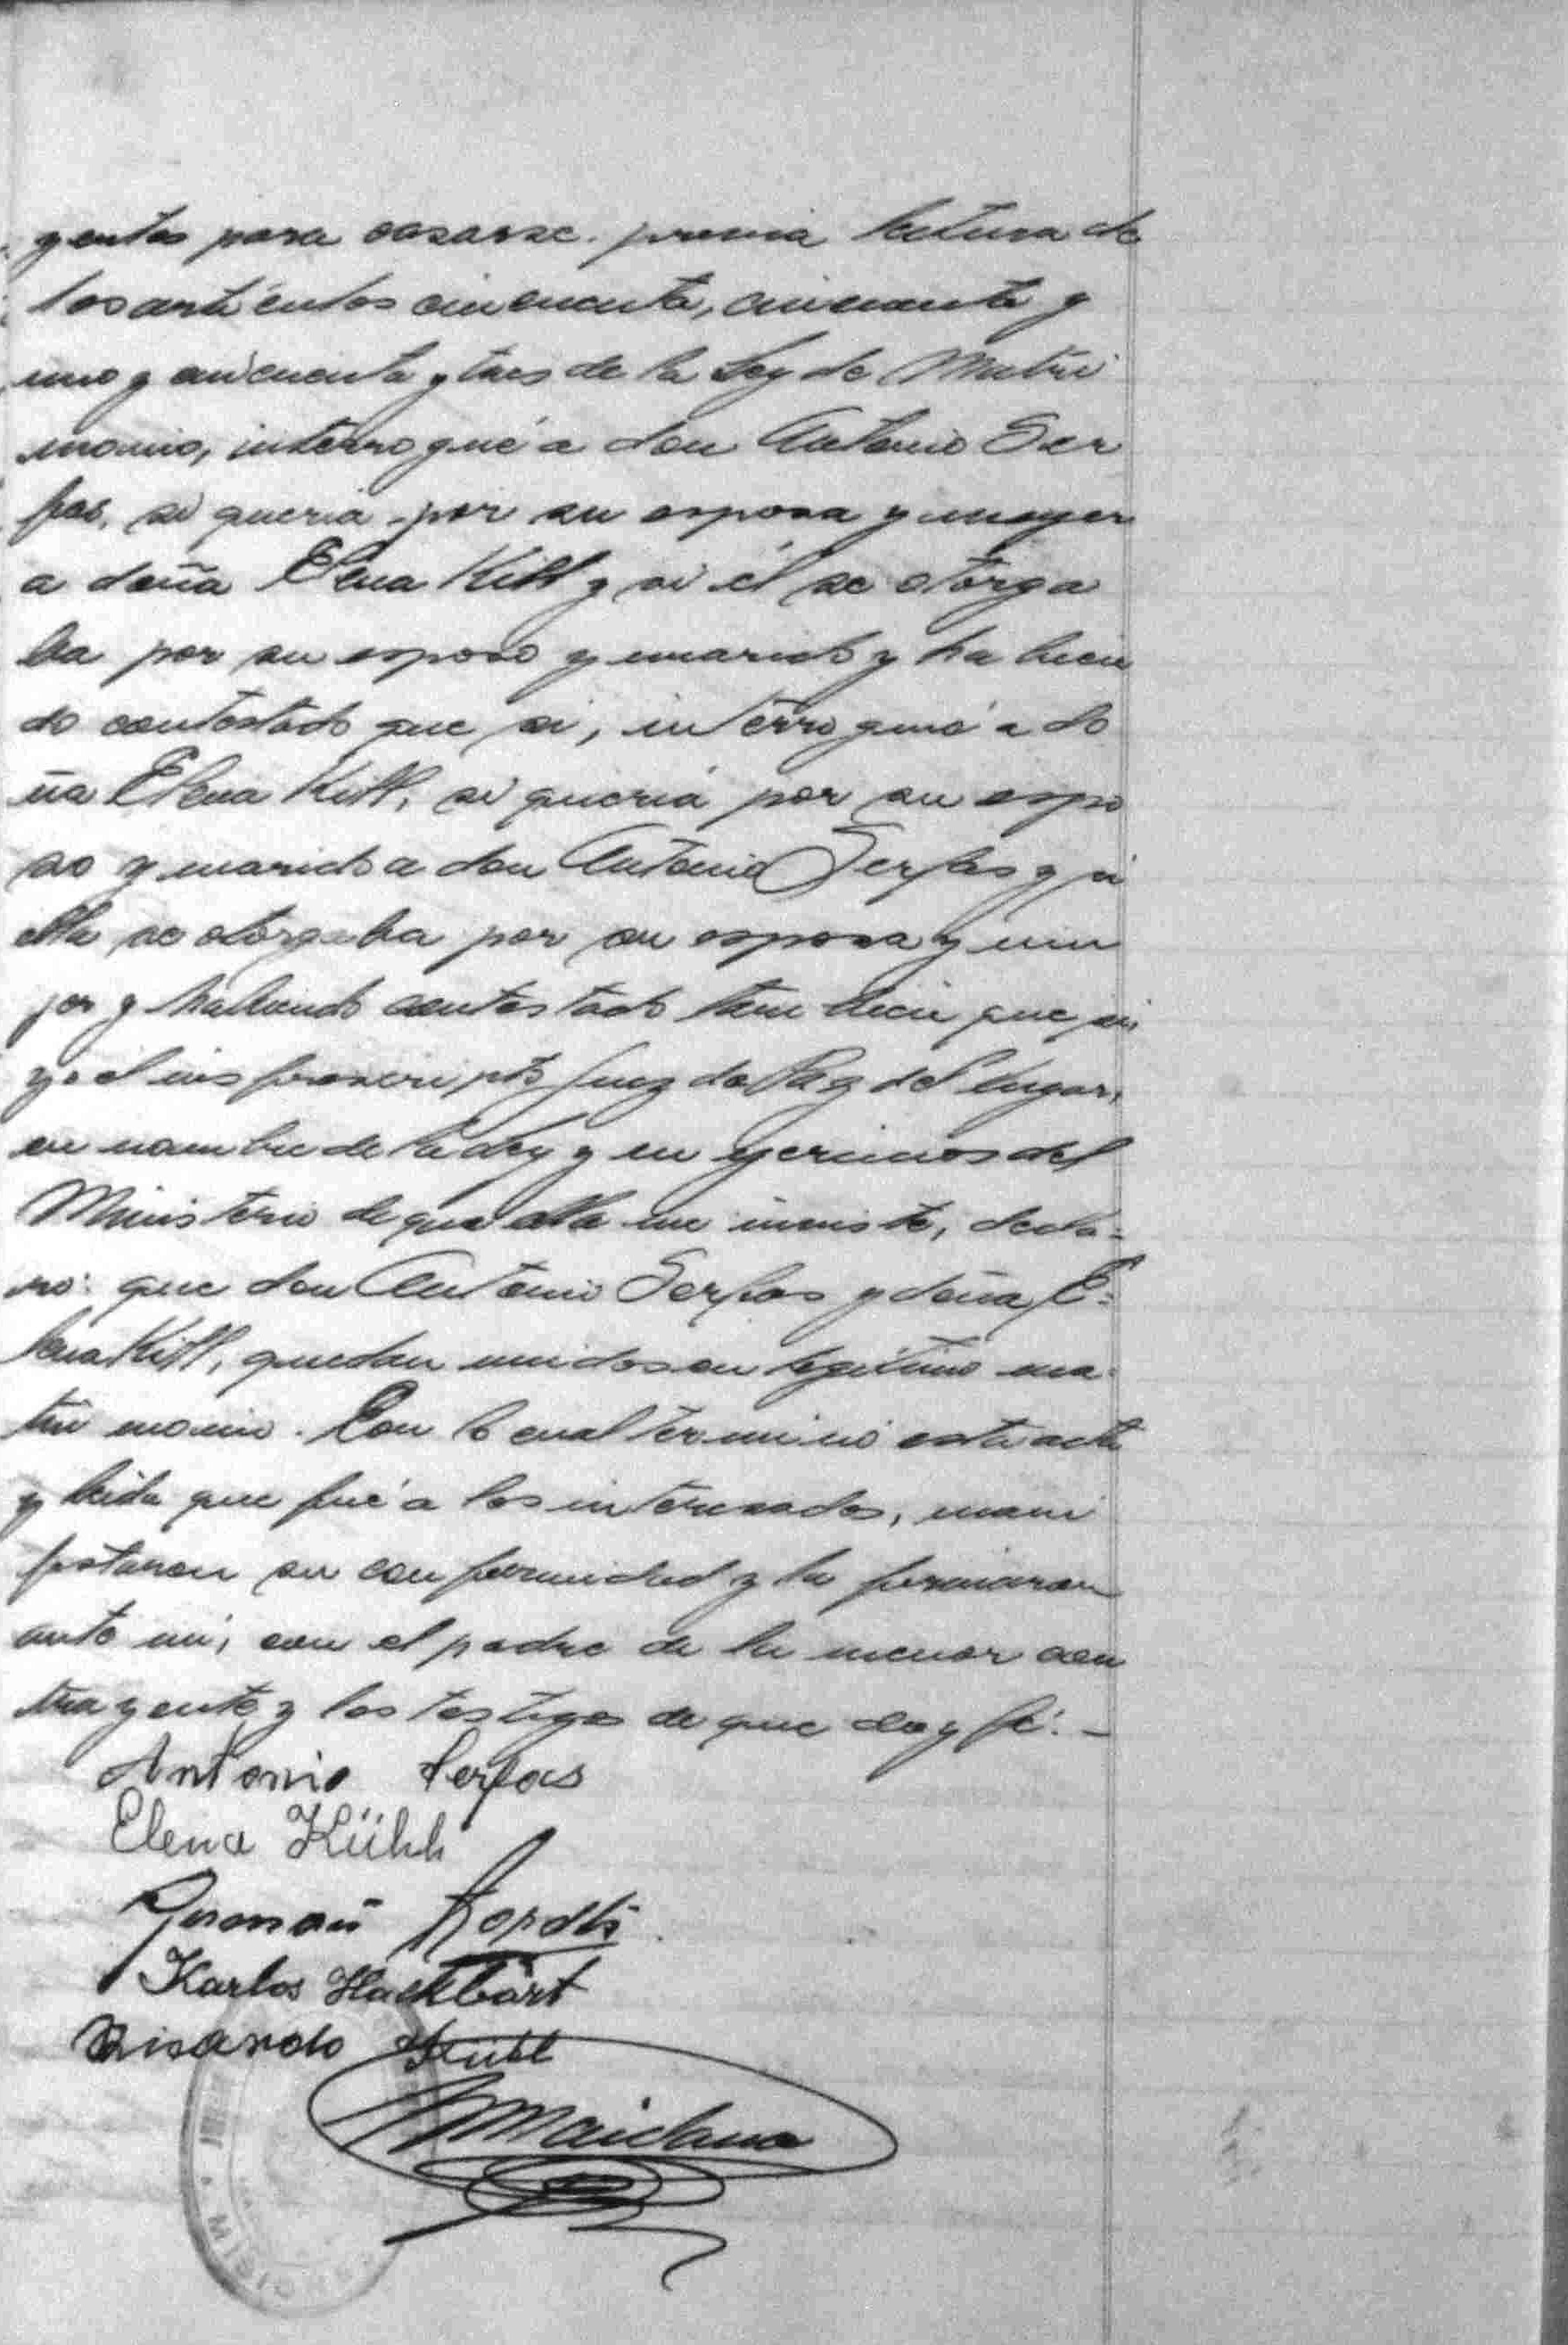 yentes para casarse. previa lectura de
los artículos cincuenta, cincuenta y
uno y cincuenta y tres de la Ley de Matri
monio, interrogué a don Antonio Ser
fas, si queria por su esposa y mujer
a doña Elena Kill y si él se otorga
ba por su esposo y marido y habien
do contestado que si, interrogué a do
ña Elena Kill, si queria por su espo
so y marido a don Antonio Serfas y si
ella se otorgaba por su esposa y mu
jer y habiendo contestado tam bien que si,
yo el infrascripto Juez de Paz del lugar,
en nombre de la Ley y en ejercicios del
Ministerio de que ella me inviste, decla=
ro: que don Antonio Serfas y doña E=
lena Kill, quedan unidos en legítimo ma=
tri monio. Con lo cual terminó esta acta
y leida que fué a los interesados, mani
festaron su conformidad y la firmaron
ante mi, con el padre de la menor con
trayente y los testigos de que doy fé. –
Antonio Serfas
Elena Kühl
Karlos Hackbart
Risardo Kühl
Maidana